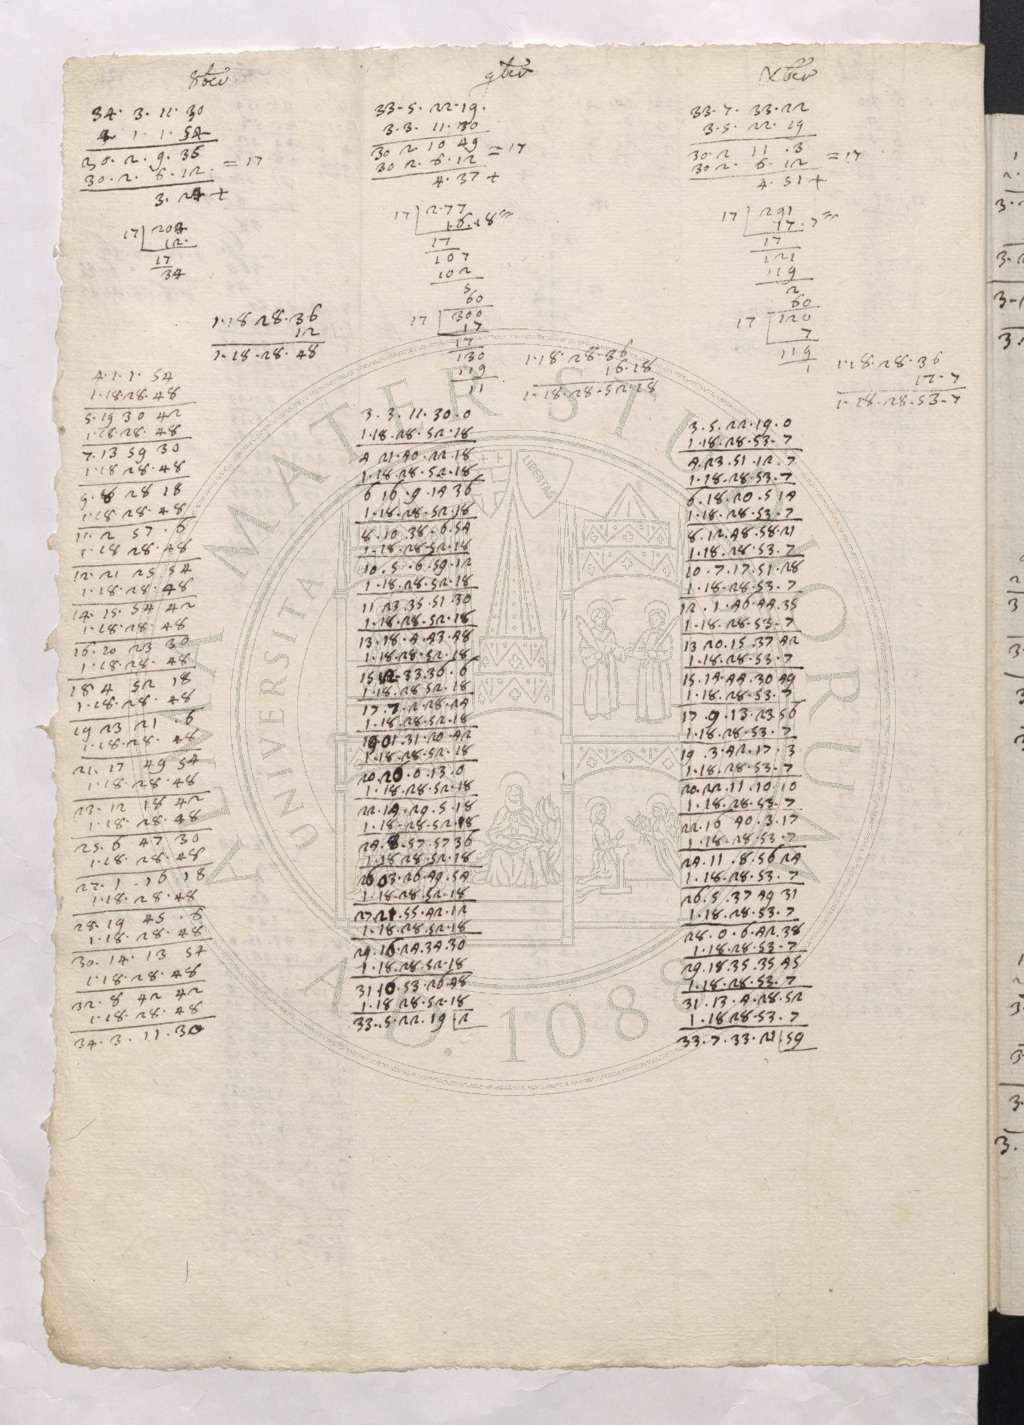 8bris
34. 3. 11. 30
4 1. 1. 54
30. 2. 9. 36
30. 2. 6. 12. = 17
3. 24 +
17 204
12.
17
34
1.18 28.36
12
1.18.28.48
4.1.1.54
1.18.28.48
5.19 30 42
1.18.28.48
7.13 59 30
1.18 28.48
9.8 28 18
1.18 28.48
11.2 57.6
1.18 28.48
12.21 25 54
1.18.28.48
14.15.54 42
1.18.28.48
16.10 23 30
1.18.28.48
18 4 52 18
1.18.28.48
19 23 21.6
1.18.28.48
21.17 49 54
1.18 28.48
23.12 18 42
1.18.28.48
25.6 47 30
1.18.28.48
27.1.16 18
1.18.28.48
28.19 45.6
1.18.28.48
30.14.13 54
1.18.28.48
32.8 42 42
1.18.28.48
34.3.11.30
9bris
33.5.22.19.
3.3. 11.30
30 2 10 49
30 2.6.12 = 17
4.37 +
17 277
16.18
17
107
102
5
60
17 300
17
17
130
119
11
1.18 28.36
16.18
1.18.28.52.18
3.3.11.30.0
1.18.28.52.18
4 21.40.22.18
1.18.28.52.18
6 16.9.14 36
1.18.28.52.18
8.10.38.6.54
1.18.28.52.18
10.5.6.59.12
1.18.28.52.18
11 23.35.51.30
1.18.28.52.18
13.18.4.43.48
1.18.28.52.18
15 12.33.36.6
1.18.28 52.18
17.7.2.28.24
1.18.28.52.18
19 01.31.20.42
1.18.28.52.18
20.20.0.13.0
1.18.28.52.18
22.14.29.5.18
1.18.28.52.18
24.8.57.57 36
1.18.28.52.18
26 03.26.49.54
1.18.28.52.18
27 21.55.42.12
1.18.28.52.18
29.16.24.34.30
1.18.28.52.18
31 10.53.26.48
1.18 28.52.18
33.5.22.19 2
Xbris
33.7.33.22
3.5.22.19
30.2 11.3
30 2. 6.12 = 17
4.51 +
17 291
17.7
17
121
119
2
60
17 120
7
119
1
1.18.28.36
17.7
1.18.28.53.7
3.5.22.19.0
1.18.28.53.7
4.23.51.12.7
1.18.28.53.7
6.18.20.5 14
1.18.28.53.7
8.12.48.58.21
1.18.28.53.7
10.7.17.51.28
1.18.28.53.7
12.1.46.44.35
1.18.28.53.7
13 20.15.37 42
1.18.28.53.7
15.14.44.30 49
1.18.28.53.7
17.9.13.23 56
1.18.28.53.7
19.3.42.17.3
1.18.28.53.7
20.22.11.10 10
1.18.28.53.7
22.16 40.3.17
1.18.28.53.7
24.11.8.56 24
1.18.28.53.7
26.5.37 49 31
1.18.28.53.7
28.0.6.42.38
1.18.28.53.7
29.18.35.35 45
1.18.28.53.7
31.13.4.28.52
1.18 28.53.7
33.7.33.21 59
ALMA MATER STUDIORUM
UNIVERSITA
LIBERTAS
A.D. 1088